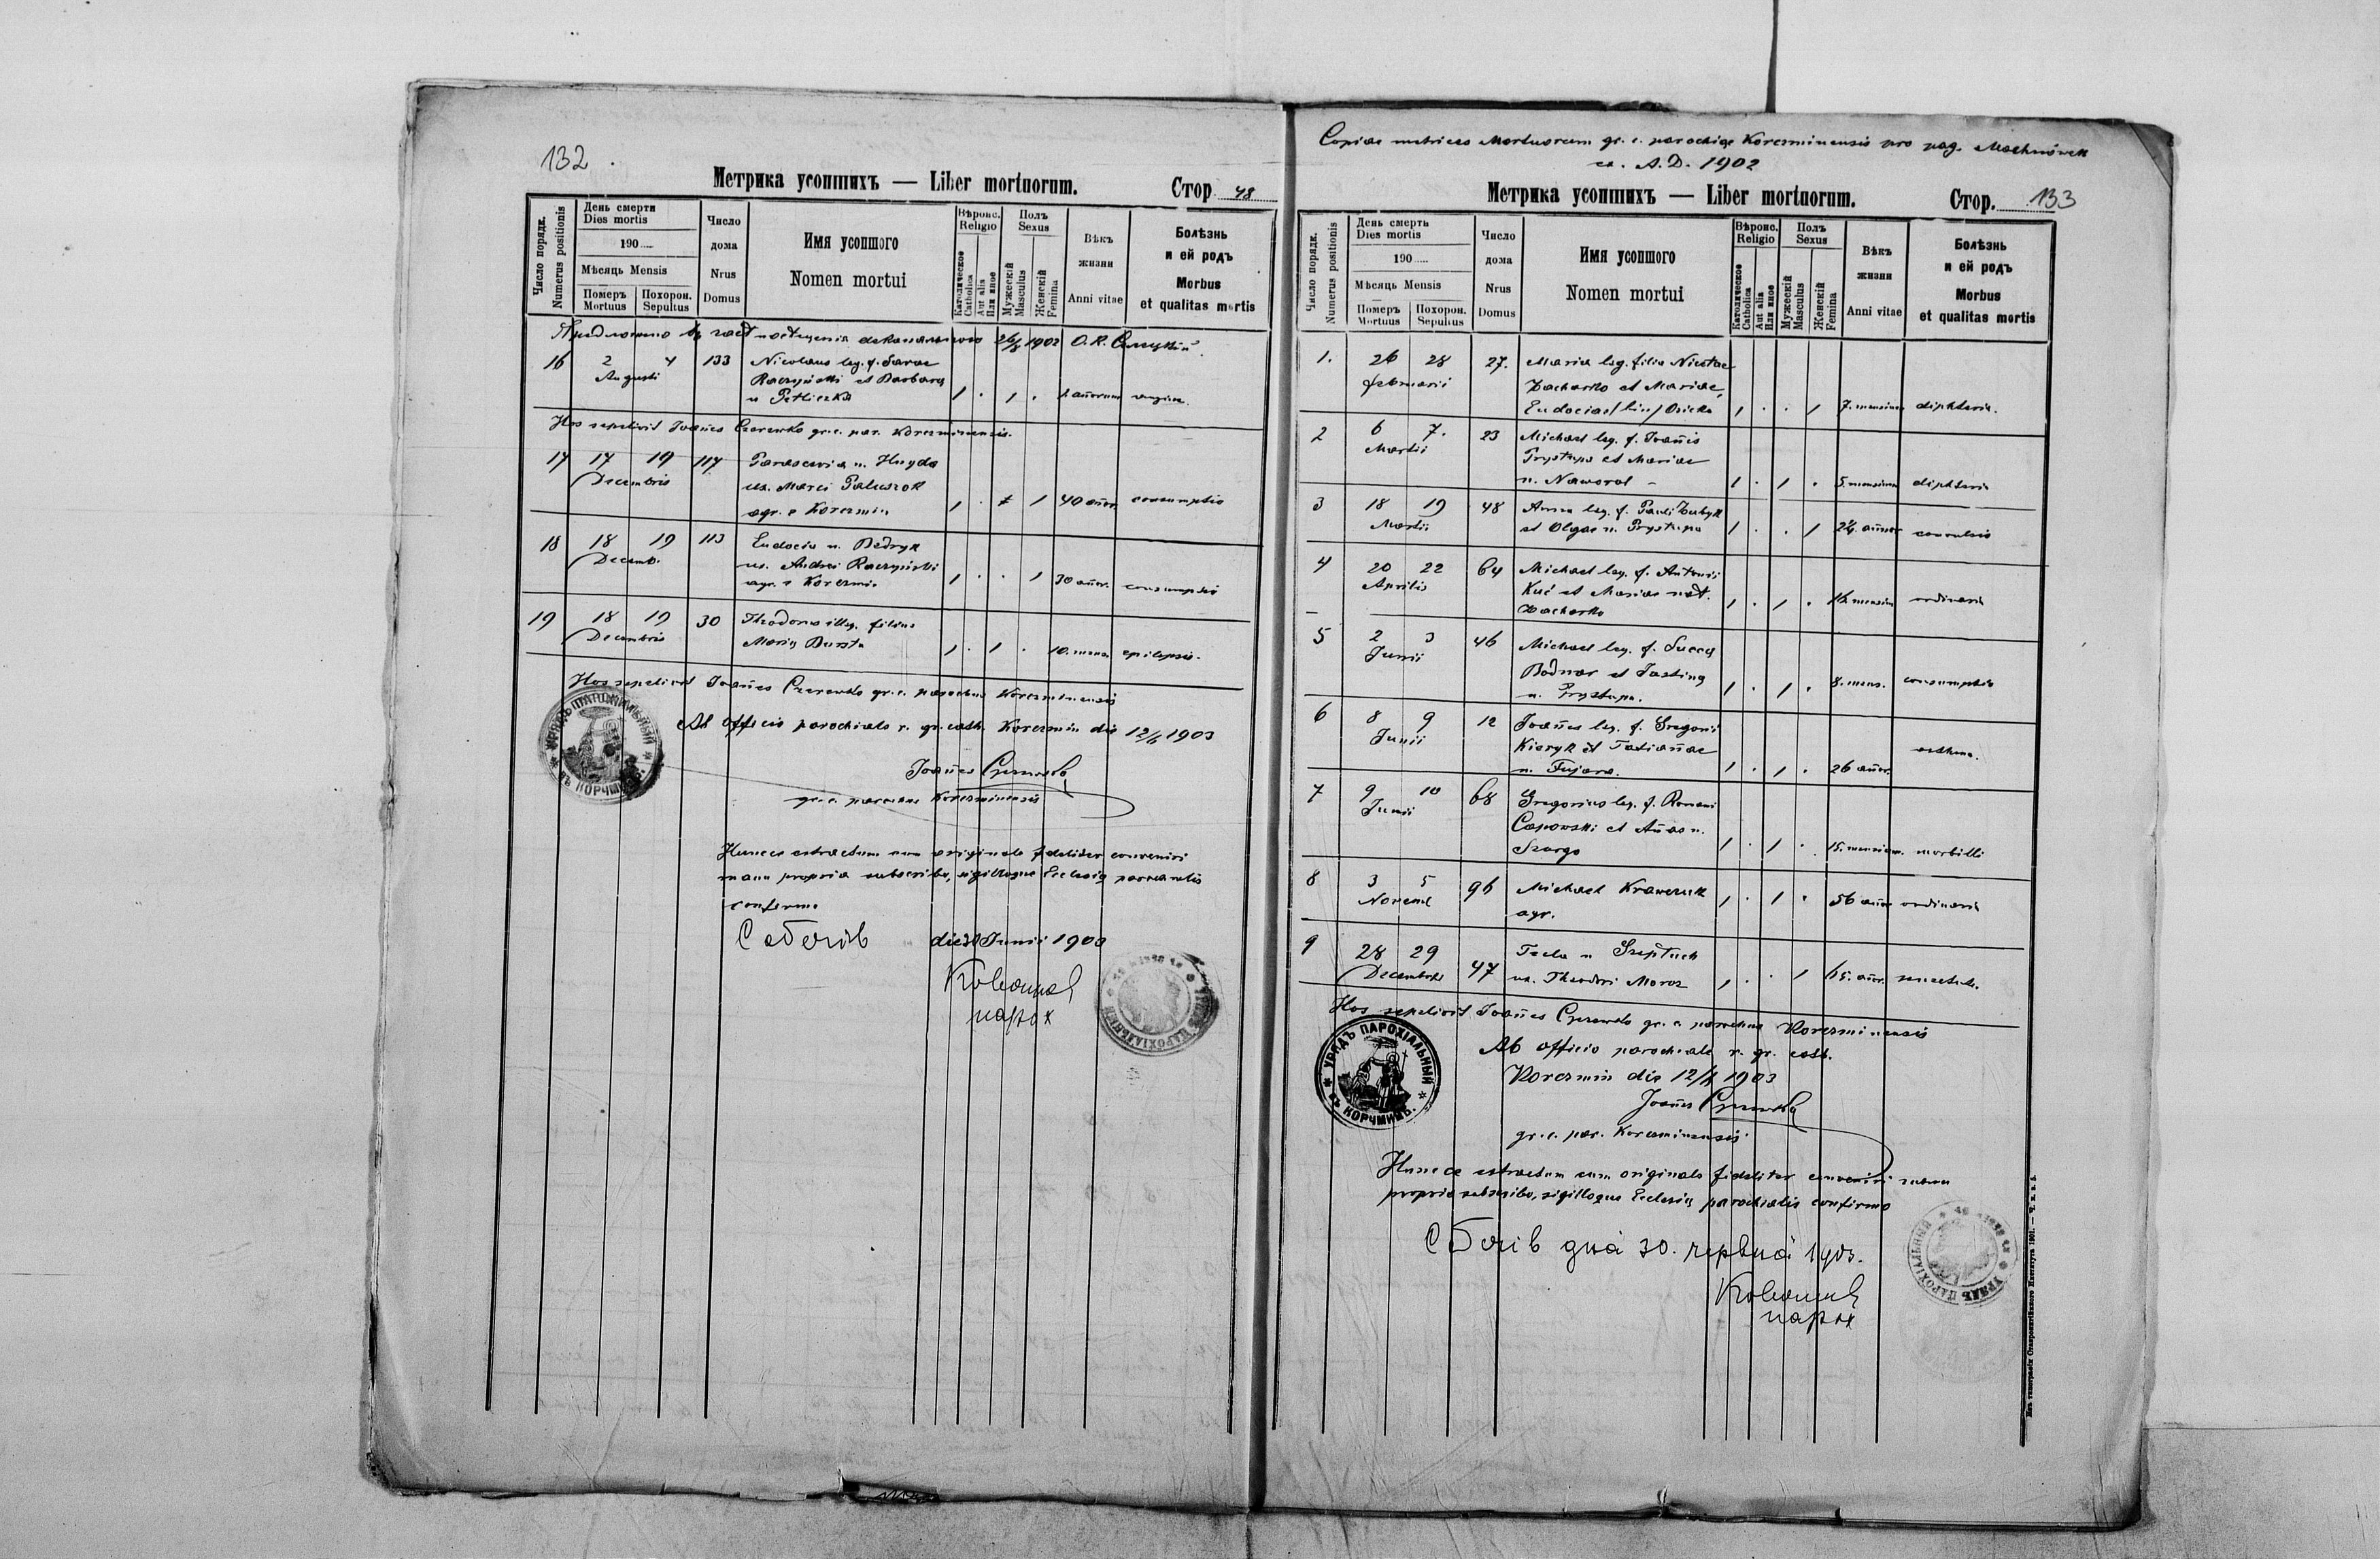 132
Метрика усопшихъ — Liber mortuorum.
Стор. 48
Число порядк.
Numerus positionis
День смерти
Dies mortis
190
Мѣсяць Mensis
Померъ
Mortuus
Похорон.
Sepultus
Число
дома
Nrus
Domus
Имя усопшого
Nomen mortui
Вѣроис.
Religio
Католическое
Catholica
Aut alia
Или иное
Полъ
Sexus
Мужескій
Masculus
Женскій
Femina
Вѣкъ
жизни
Anni vitae
Болѣзнь
и ей родъ
Morbus
et qualitas mortis
1902 О. К.
16 2 4 133 Nicolaus leg. f.
Augusti Raczyński et Barbara
n 1 . 1 .
Hos sepelivit Joañes Czerewko gr. c. par. Korczminensis.
17 17 19 117 Parascevia n. Huyda
Decembris ux. Marci Paluszok
agr. e Korczmin 1 . 1 40 añor. consumptio
18 18 19 113 Eudocia n. Bedryk
Decemb. ux. Andrei Raczyński
agr. e Korczmin 1 . . 1 30 añor. consumptio
19 18 19 30 Theodorus illeg. filius
Decembris Marię Burda 1 . 1 . 10. mens. epilepsis.
Hos sepelivit Joañes Czerewko gr. c. parochus Korczminensis
Ab officio parochiale r. gr. cath. Korczmin die 12/ 1903
Joañes Czerewko
gr. c. parochus Korczminensis
УРЯДЪ ПАРОХІАЛЬНЫЙ
ВЪ КОРЧМИНѢ.
Hunce extractum cum originale fideliter conveniri
manu propria subscribo, sigilloque Ecclesię parochialis
confirmo
die 30 Junii 1903
парох
Copiae metrices Mortuorum gr. c. parochiae Korczminensis pro pag. Machnówek
A. D. 1902
Метрика усопшихъ — Liber mortuorum.
Стор. 133
Число порядк.
Numerus positionis
День смерть
Dies mortis
190
Мѣсяць Mensis
Померъ
Mortuus
Похорон.
Sepultus
Число
дома
Nrus
Domus
Имя усопшого
Nomen mortui
Вѣроис.
Religio
Католическое
Catholica
Aut alia
Или иное
Полъ
Sexus
Мужескій
Masculus
Женскій
Femina
Вѣкъ
жизни
Anni vitae
Болѣзнь
и ей родъ
Morbus
et qualitas mortis
1. 26 28 27. Maria leg. filia Nicolae
Februarii Zacharko et Mariae,
Eudociae 1 . . 1 7. mensium diphteria.
2 6 7. 23 Michael leg. f. Joañis
Martii Prystupa et Mariae
n. Naworol 1 . 1 . 5. mensium diphteria
3 18 19 48 Anna leg. f. Pauli Zubyk
Martii et Olgae n. Prystupa 1 . . 1 añor convulsio
4 20 22 64 Michael leg. f. Antonii
Aprilis Kuć et Mariae nat.
Zacharko 1 . 1 . mensium ordinaria
5 2 3 46 Michael leg. f. Lucę
Junii Bodnar et Justinę
n. Prystupa. 1 . 1 . 8. mens. consumptio
6 8 9 12 Joañes leg. f. Gregorii
Junii Kieryk et Tatiañae
n. Fujara. 1 . 1 . 26 añor. asthma.
7 9 10 68 Gregorius leg. f. Romani
Junii et Añae n.
Szargo 1 . 1 . 15. mensium. morbilli
8 3 5 96 Michael Krawczuk
Novemb agr. 1 . 1 . 56 añor ordinaria
9 28 29 47 Tecla n
Decembris ux. Theodori Moroz 1 . . 1 65. añor.
Hos sepelivit Joañes Czerewko gr. c. parochus Korczminensis
Ab officio parochiale r. gr. cath.
Korczmin die 12/ 1903
Joañes Czerewko
gr. c. par. Korczminensis
УРЯДЪ ПАРОХІАЛЬНЫЙ
ВЪ КОРЧМИНѢ.
Hunce extractum cum originale fideliter conveniri manu
propria subscribo, sigilloque Ecclesię parochialis confirmo
дня 30. червня 1903.
парох
УРЯДЪ ПАРОХІАЛЬНЫЙ